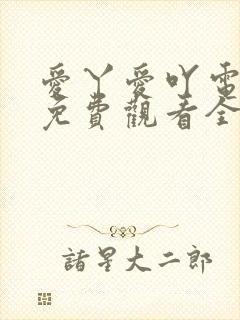 愛丫愛吖電
免費觀看全
諸星大二郎